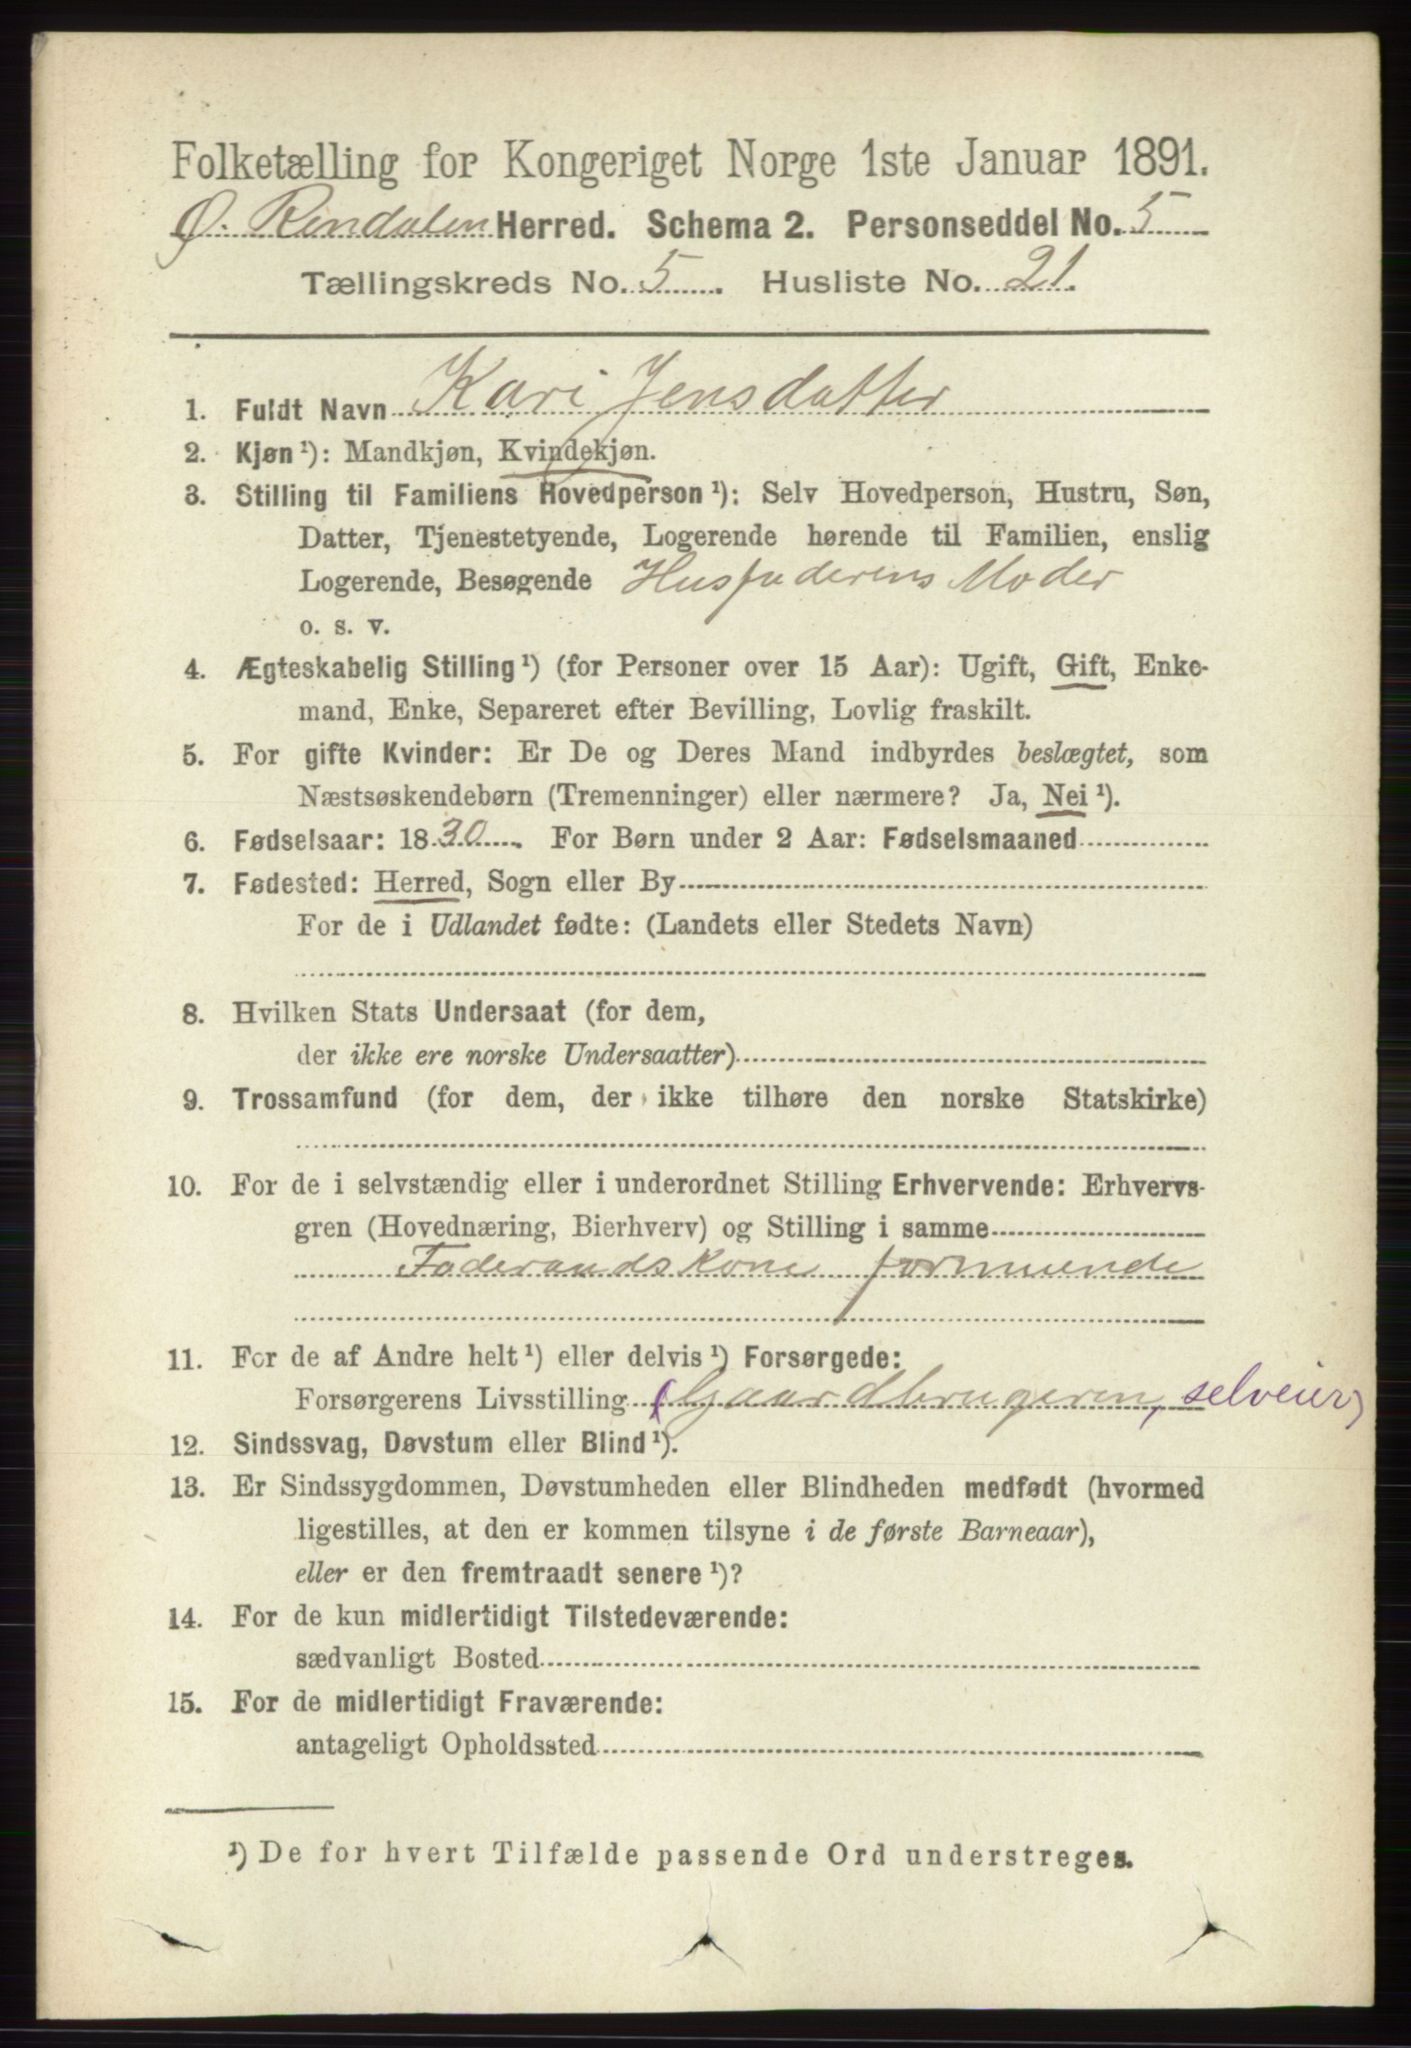 Folketælling for Kongeriget Norge 1ste Januar 1891.
Ø. Rendalen Herred. Schema 2. Personseddel No. 5
Tællingskreds No. 5. Husliste No. 21.
1. Fuldt Navn Kari Jensdatter
2. Kjøn ¹): Mandkjøn, Kvindekjøn.
3. Stilling til Familiens Hovedperson ¹): Selv Hovedperson, Hustru, Søn,
Datter, Tjenestetyende, Logerende hørende til Familien, enslig
Logerende, Besøgende Husfaderens Moder
o. s. v.
4. Ægteskabelig Stilling ¹) (for Personer over 15 Aar): Ugift, Gift, Enke-
mand, Enke, Separeret efter Bevilling, Lovlig fraskilt.
5. For gifte Kvinder: Er De og Deres Mand indbyrdes beslægtet, som
Næstsøskendebørn (Tremenninger) eller nærmere? Ja, Nei ¹).
6. Fødselsaar: 1830. For Børn under 2 Aar: Fødselsmaaned
7. Fødested: Herred, Sogn eller By
For de i Udlandet fødte: (Landets eller Stedets Navn)
8. Hvilken Stats Undersaat (for dem,
der ikke ere norske Undersaatter)
9. Trossamfund (for dem, der ikke tilhøre den norske Statskirke)
10. For de i selvstændig eller i underordnet Stilling Erhvervende: Erhvervs-
gren (Hovednæring, Bierhverv) og Stilling i samme
Føderaadskone formuende
11. For de af Andre helt ¹) eller delvis ¹) Forsørgede:
Forsørgerens Livsstilling (Gaardbrugeren, selveier)
12. Sindssvag, Døvstum eller Blind ¹).
13. Er Sindssygdommen, Døvstumheden eller Blindheden medfødt (hvormed
ligestilles, at den er kommen tilsyne i de første Barneaar),
eller er den fremtraadt senere ¹)?
14. For de kun midlertidigt Tilstedeværende:
sædvanligt Bosted
15. For de midlertidigt Fraværende:
antageligt Opholdssted
¹) De for hvert Tilfælde passende Ord understreges.